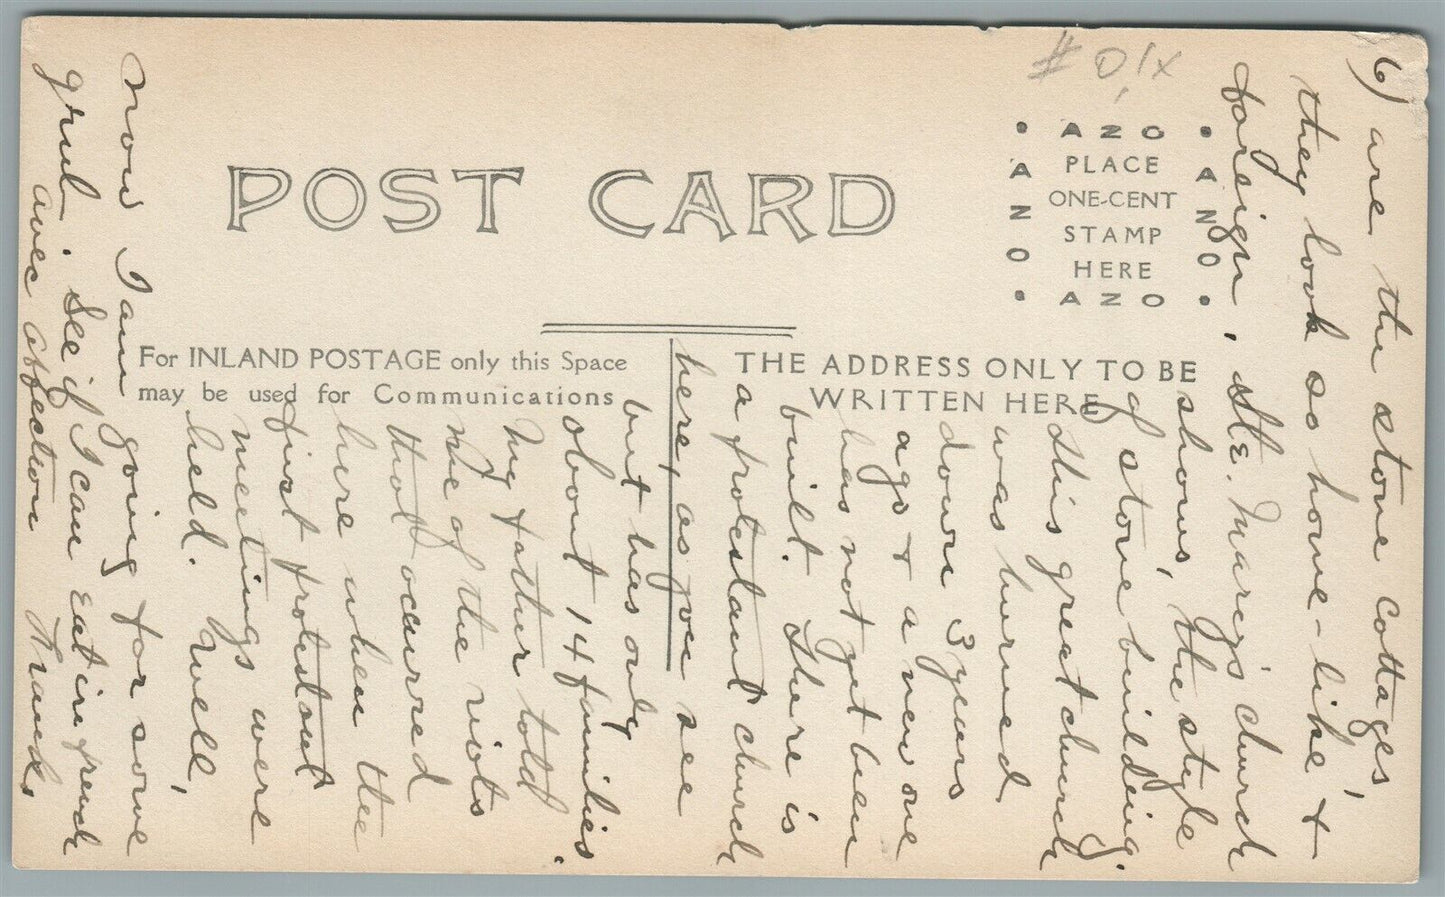 POST CARD
# 0/x
AZO
PLACE
ONE-CENT
STAMP
HERE
AZO
AZO
AZO
For INLAND POSTAGE only this Space
may be used for Communications
THE ADDRESS ONLY TO BE
WRITTEN HERE
6) are the stone cottages,
they look so home-like &
foreign, Ste. Mary's church
shows, the style
of stone building.
this great church
was burned
down 3 years
ago & a new one
has not yet been
built. There is
a protestant church
here, as you see
but has only
about 14 families.
My father told
me of the riots
that occurred
here when the
first protestant
meetings were
held. Well,
now I am going for some
grub. See if I can eat in french
avec affection Frances